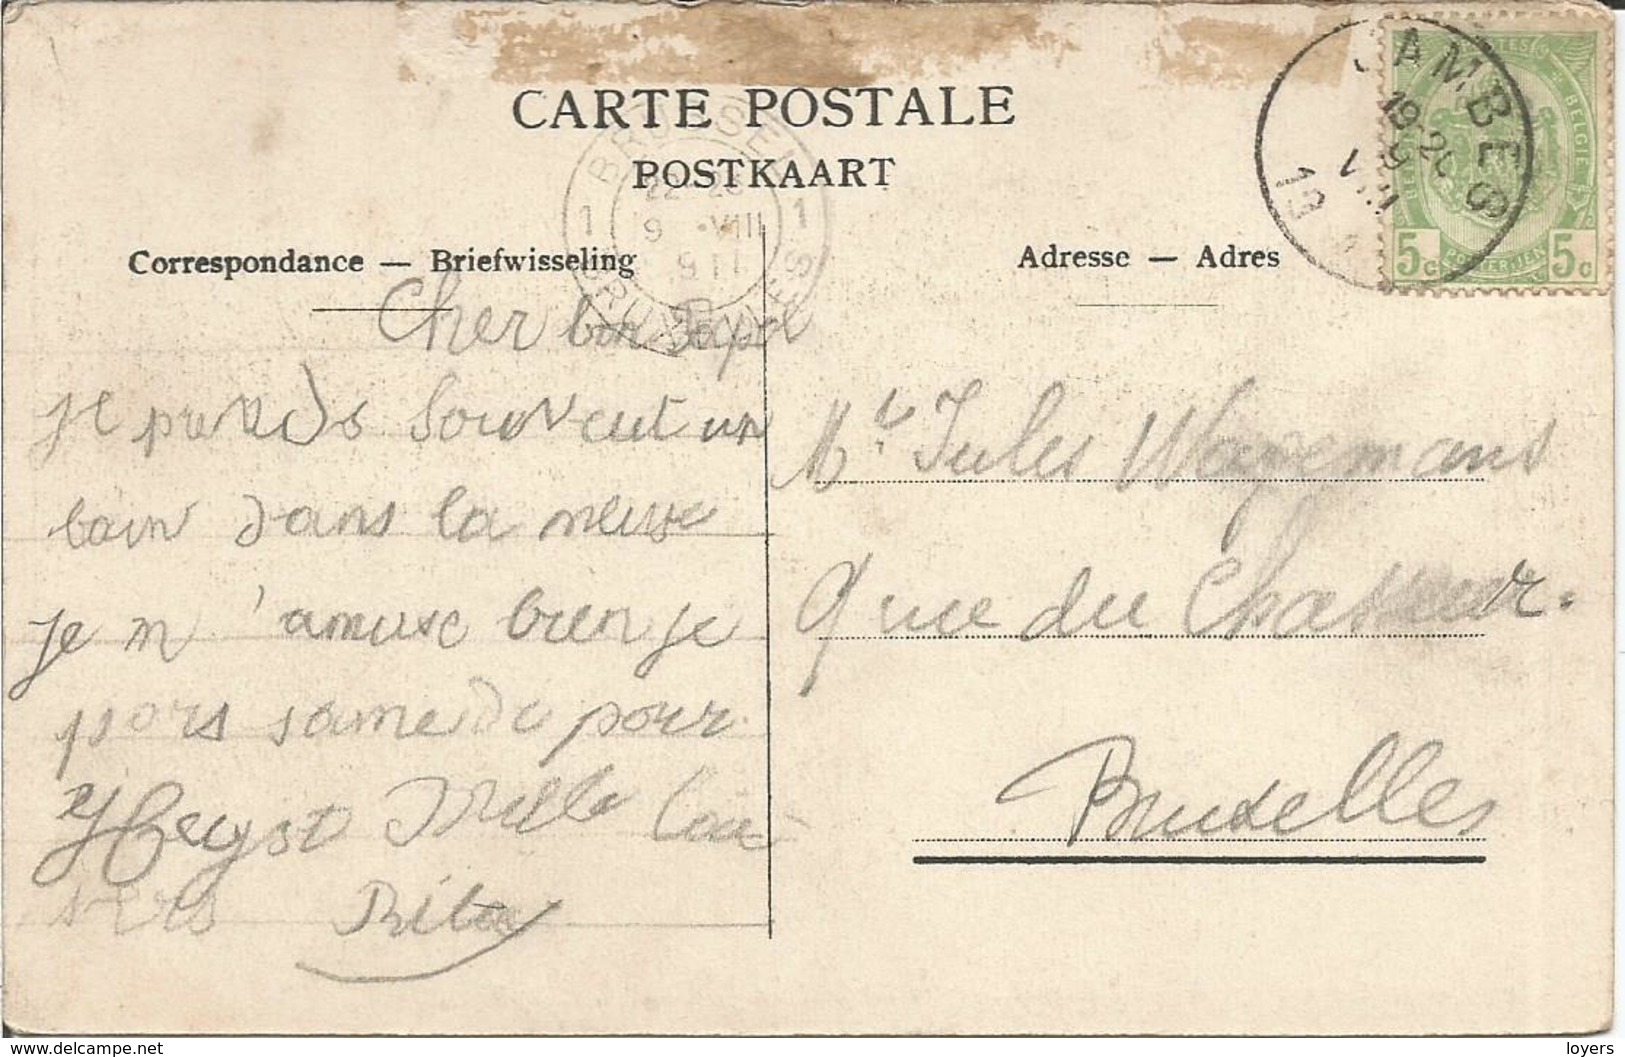 CARTE POSTALE
POSTKAART
BRUSSEL
1 1
9 VIII
BRUXELLES
JAMBES
19-20
9
VIII
POSTES BELGIE
5c 5c
POSTERIJEN
Correspondance — Briefwisseling
Adresse — Adres
Cher bon Papa
je prends Souvent un
bain dans la meuse
je m'amuse bien je
pars samedi pour
Heyst Mille bai-
sers Rita
Mr Jules Wagemans
9 rue du Chasseur.
Bruxelles
loyers
delcampe.net